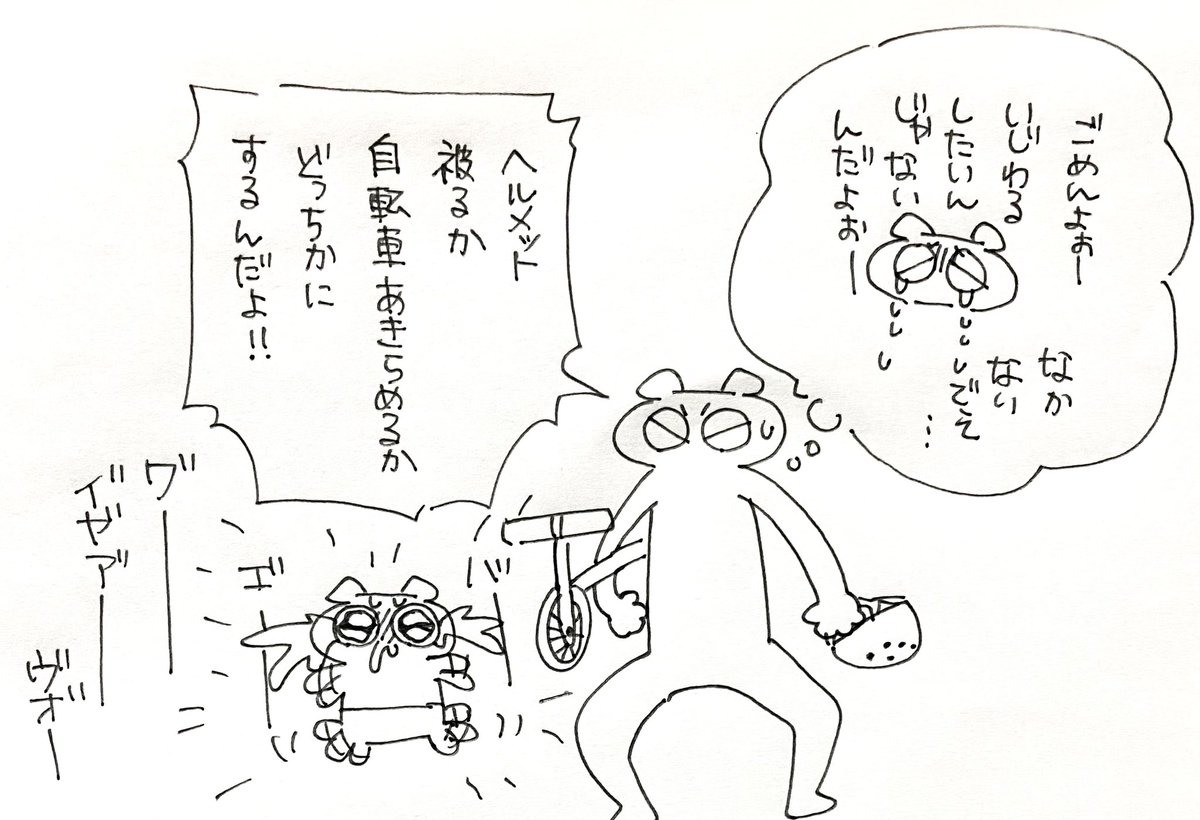 ごめんよぉー
いじわる
したいん
じゃない
んだよぉー
なか
ない
でぇ…
ヘルメット
被るか
自転車あきらめるか
どっちかに
するんだよ!!
バー
ゴー
ヴー
イ゛ゼア゛ー
ヴオ゛ー